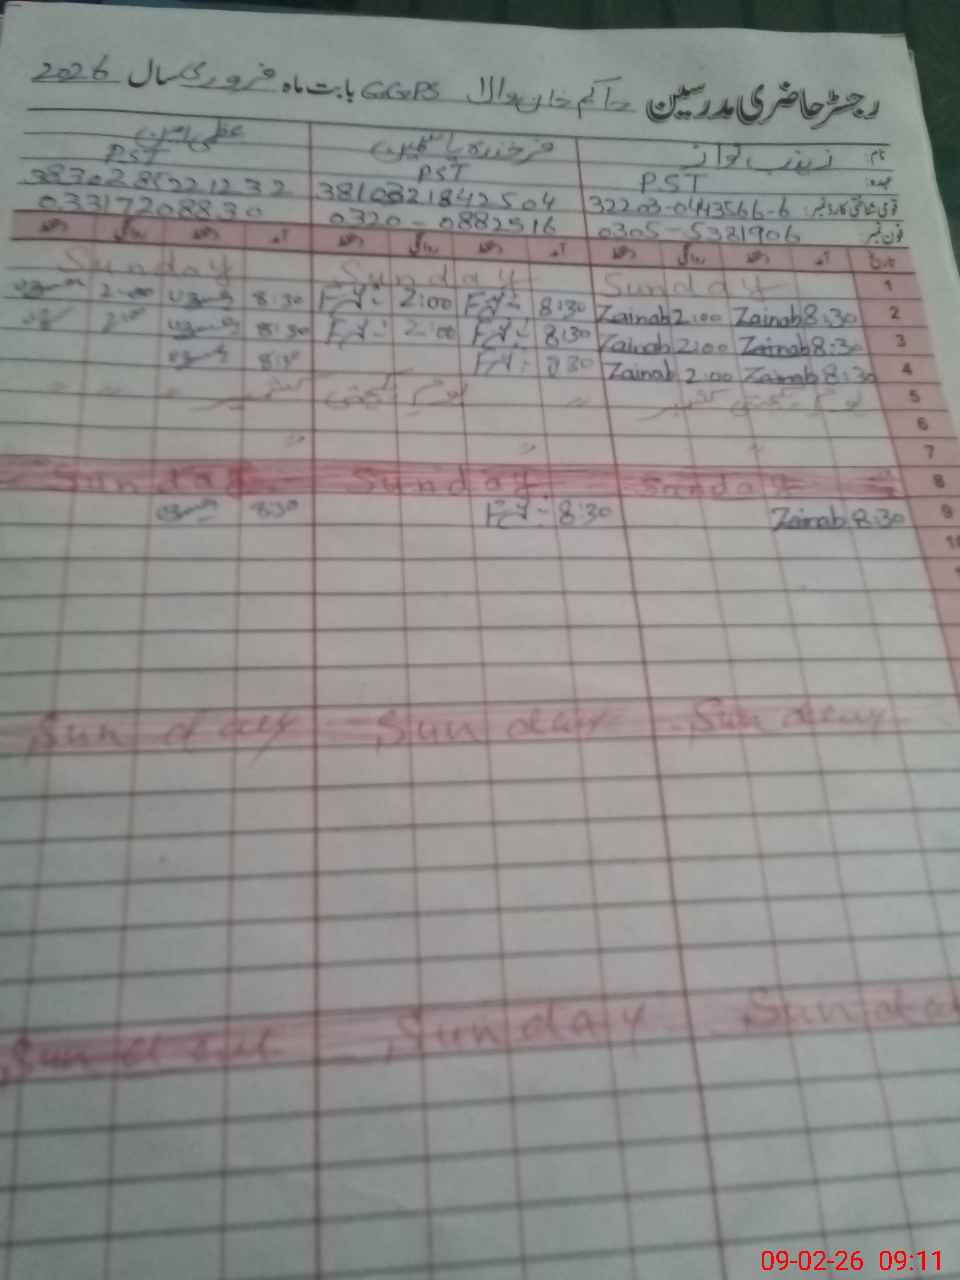 رجسٹر حاضری مدرسین حاکم خان والا GGPS بابت ماہ فروری سال 2026
نام زینب نواز فرخندہ یاسمین عظمیٰ
عہدہ PST PST PST
قومی شناختی کارڈ نمبر: 32203-0443566-6 3810321842504
فون نمبر 0305-5381906 0320-0882516 03317208830
تاریخ آمد دستخط روانگی دستخط آمد دستخط روانگی دستخط آمد دستخط روانگی دستخط
1 Sunday Sunday Sunday
2 8:30 Zainab 2:00 Zainab 8:30 2:00 8:30 2:00
3 8:30 Zainab 2:00 Zainab 8:30 2:00 8:30 2:00
4 8:30 Zainab 2:00 Zainab 8:30 8:30
5 یوم یکجہتی کشمیر یوم یکجہتی کشمیر
6 "
7 " "
8 Sunday Sunday Sunday
9 8:30 Zainab 8:30 8:30
10
Sunday Sunday Sunday
Sunday Sunday
09-02-26 09:11